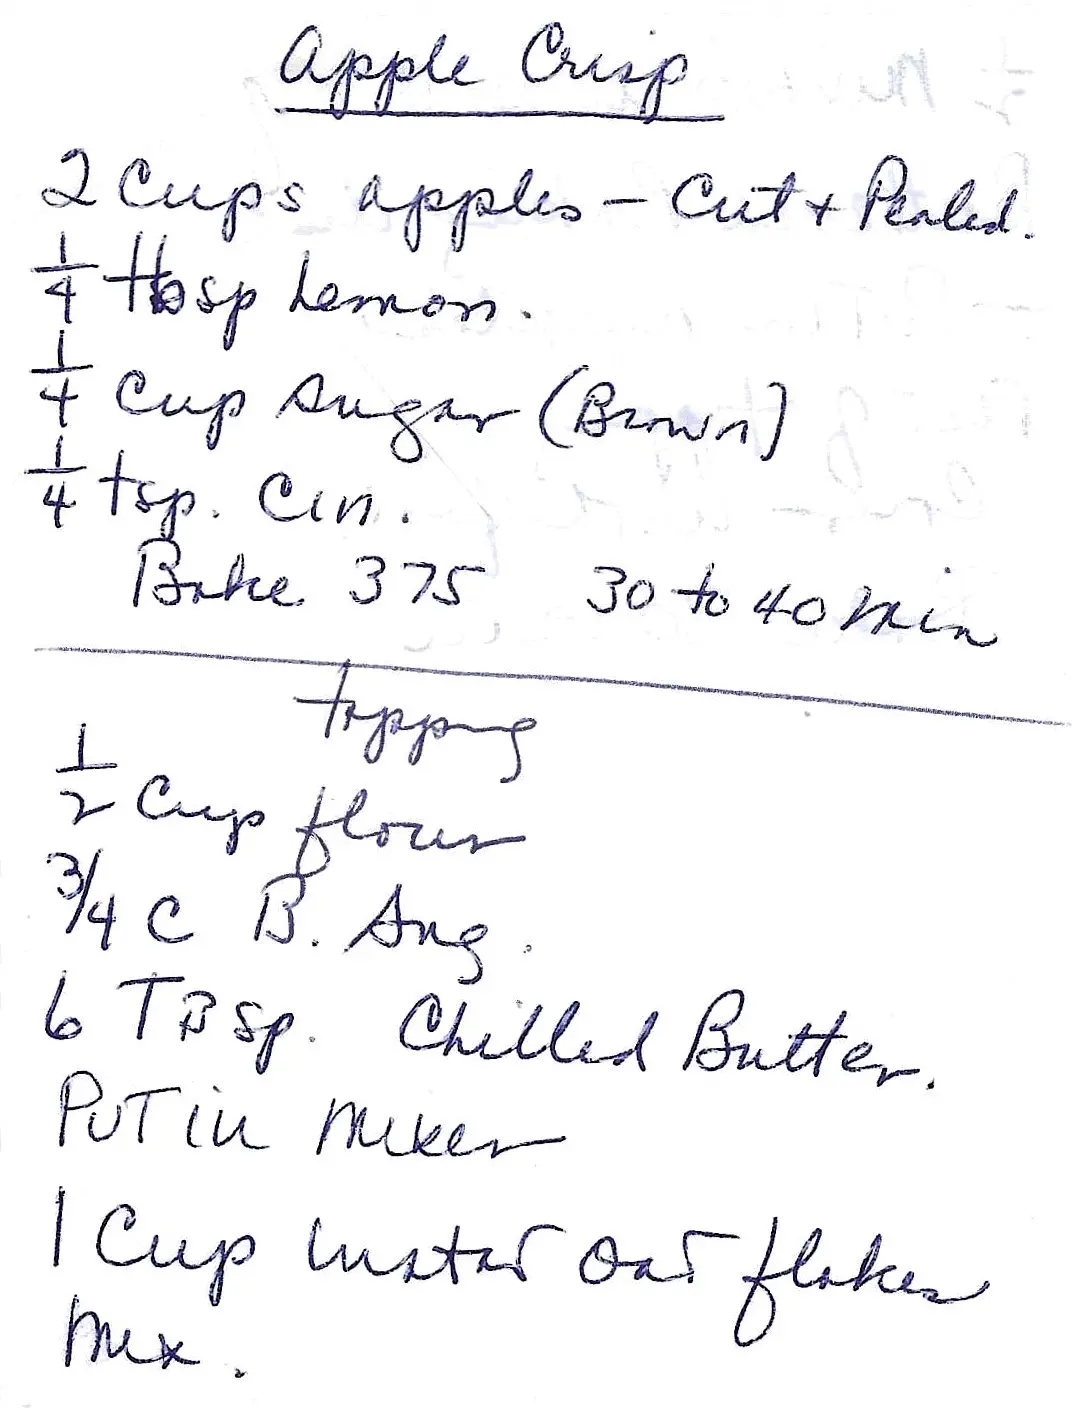 Apple Crisp
2 Cups apples - Cut + Pealed.
1/4 tbsp Lemon.
1/4 Cup Sugar (Brown)
1/4 tsp. Cin.
Bake 375 30 to 40 min
topping
1/2 Cup flour
3/4 C B. Sug.
6 TBsp. Chilled Butter.
PUT in mixer
1 Cup Oat flakes
Mix.